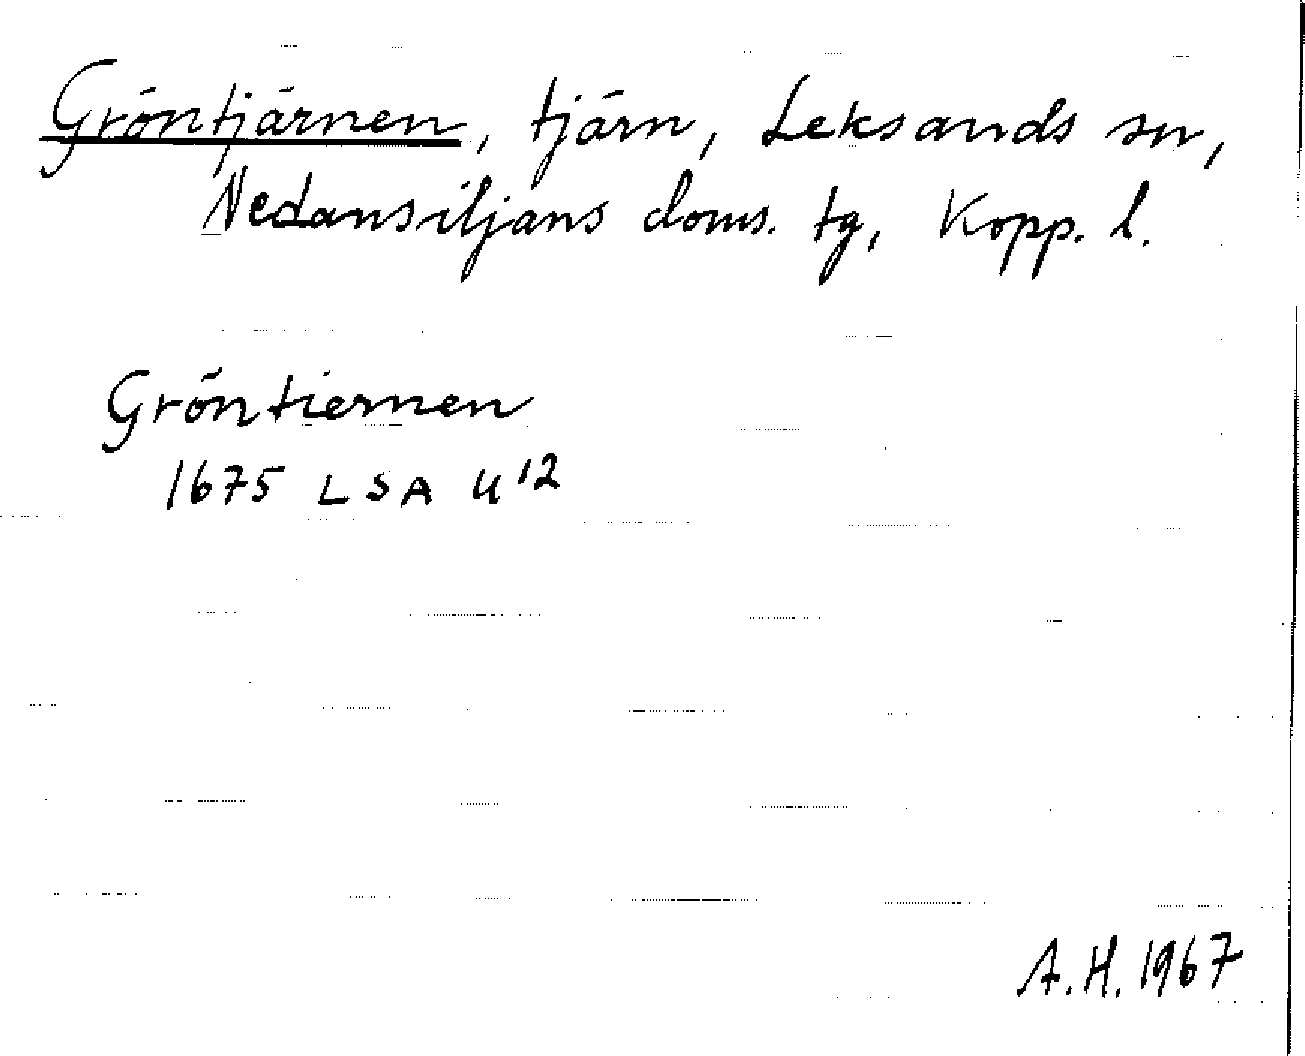 Gröntjärnen, tjärn, Leksands sn,
Nedansiljans doms. tg, Kopp. l.
Gröntiernen
1675 LSA U 12
A.H. 1967